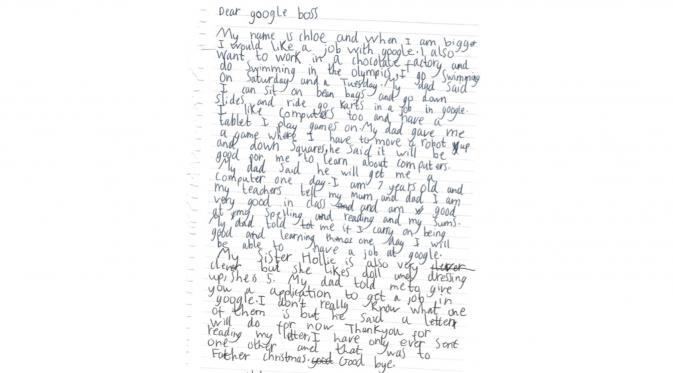 Dear google boss
My name is chloe and when I am bigger
I would like a job with google. I also
want to work in a chocolate factory and
do swimming in the olympics, I go swimming
on Saturday and a Tuesday. My dad said
I can sit on bean bags and go down
slides and ride go karts in a job in google.
I like computers too and have a
tablet I play games on. My dad gave me
a game where I have to move a robot up
and down squares, he said it will be
good for me to learn about computers.
My dad said he will get me a
computer one day. I am 7 years old and
my teachers tell my mum and dad I am
very good in class and am good
at my spelling and reading and my sums.
My dad told me if I carry on being
good and learning one day I will
be able to have a job at google.
My sister Hollie is also very
clever but she likes doll and dressing
up, shes 5. My dad told me to give
you a application to get a job in
google. I don't really know what one
of them is but he said a letter
will do for now Thankyou for
reading my letter, I have only ever sent
one other and that was to
Father christmas. Good bye.